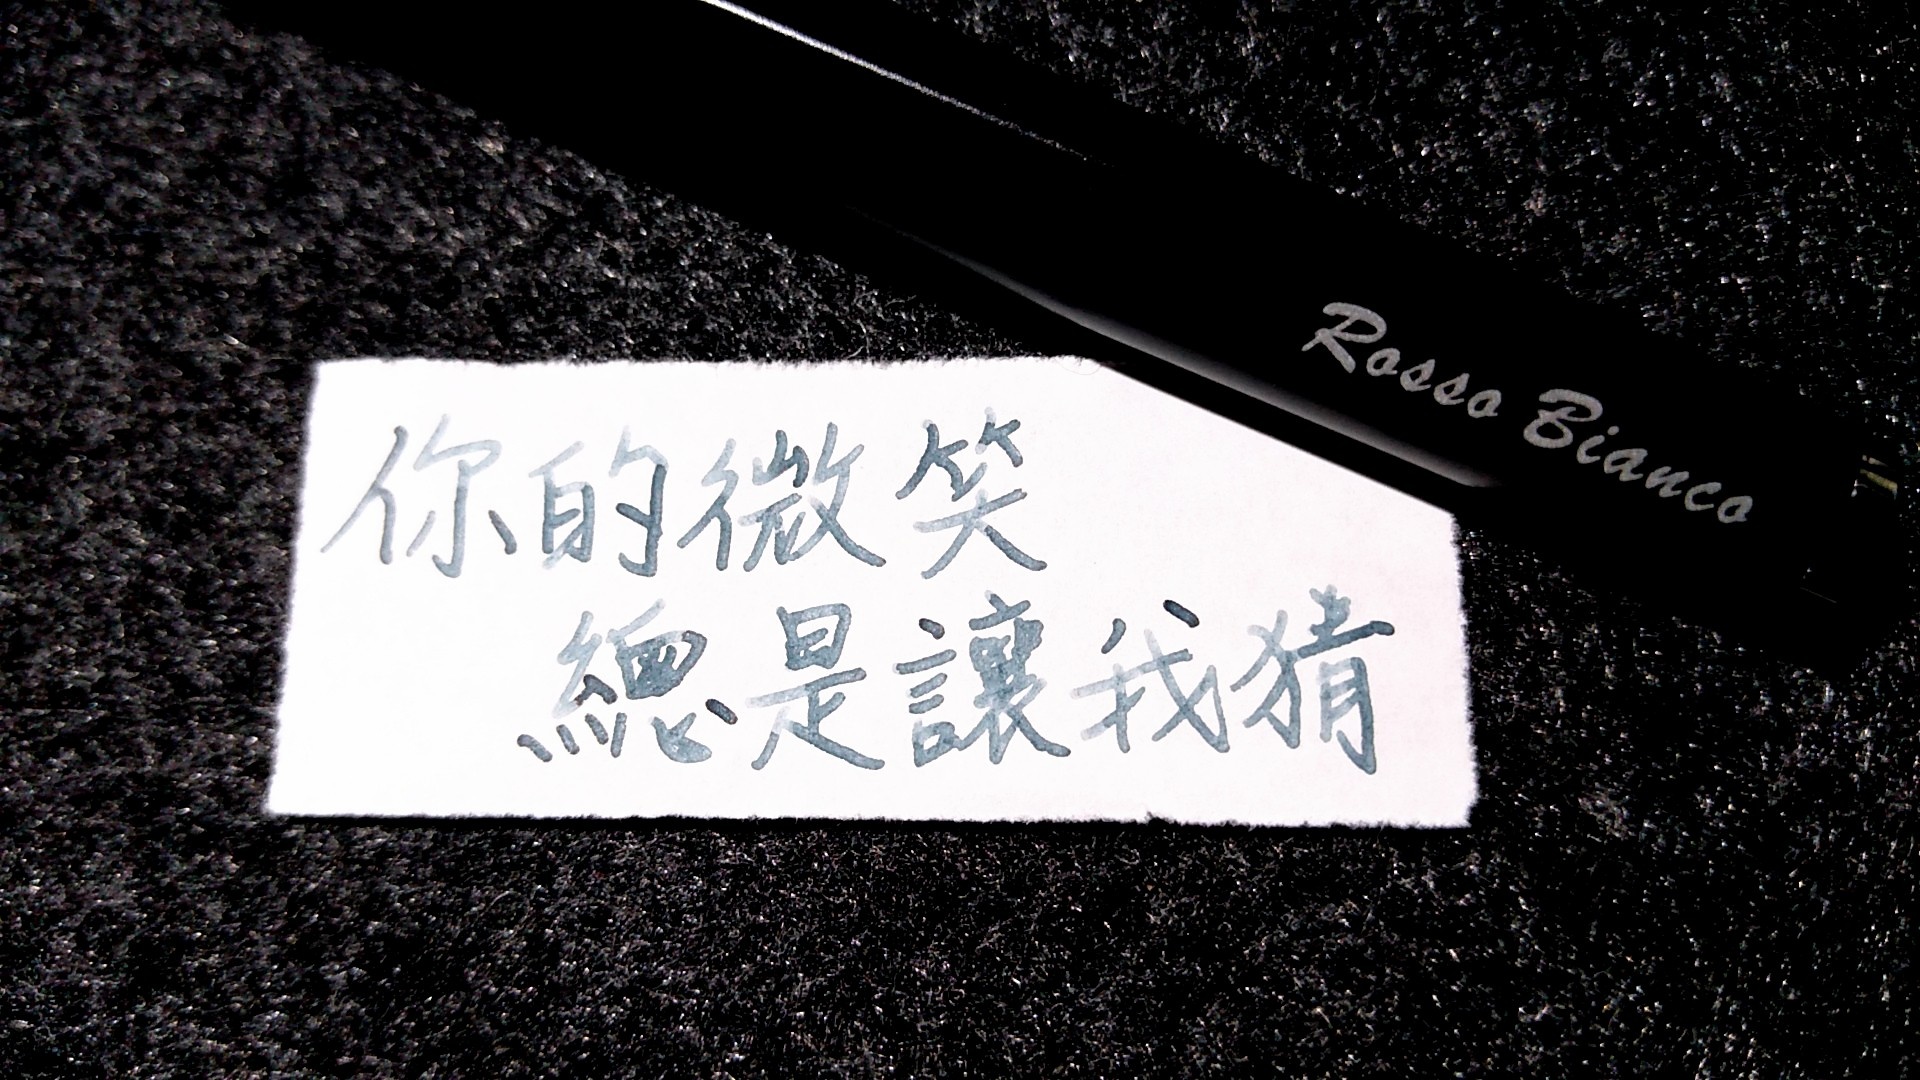 Rosso Bianco
你的微笑
總是讓我猜